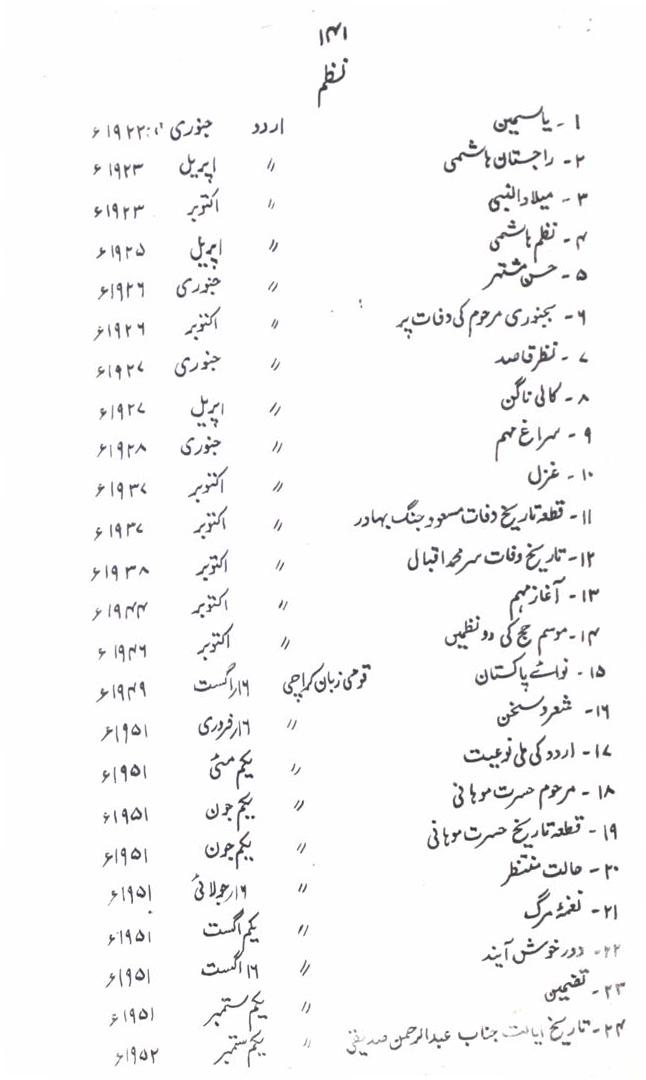 ۱۴۱
نظم
۱ - یاسمین اردو جنوری ۱۹۲۲ء
۲ - راجستان ہاشمی 〃 اپریل ۱۹۲۳ء
۳ - میلاد النبی 〃 اکتوبر ۱۹۲۳ء
۴ - نظم ہاشمی 〃 اپریل ۱۹۲۵ء
۵ - حسن مشتہر 〃 جنوری ۱۹۲۶ء
۶ - بجنوری مرحوم کی وفات پر 〃 اکتوبر ۱۹۲۶ء
۷ - نظر قاصد 〃 جنوری ۱۹۲۷ء
۸ - کالی ناگن 〃 اپریل ۱۹۲۷ء
۹ - سراغ مہم 〃 جنوری ۱۹۲۸ء
۱۰ - غزل 〃 اکتوبر ۱۹۳۷ء
۱۱ - قطعہ تاریخ وفات مسعود جنگ بہادر 〃 اکتوبر ۱۹۳۷ء
۱۲ - تاریخ وفات سر محمد اقبال 〃 اکتوبر ۱۹۳۸ء
۱۳ - آغاز مہم 〃 اکتوبر ۱۹۴۴ء
۱۴ - موسم حج کی دو نظمیں 〃 اکتوبر ۱۹۴۶ء
۱۵ - نوائے پاکستان قومی زبان کراچی ۱۶/اگست ۱۹۴۹ء
۱۶ - شعر و سخن 〃 ۱۶/فروری ۱۹۵۱ء
۱۷ - اردو کی ملی نوعیت 〃 یکم مئی ۱۹۵۱ء
۱۸ - مرحوم حسرت موہانی 〃 یکم جون ۱۹۵۱ء
۱۹ - قطعہ تاریخ حسرت موہانی 〃 یکم جون ۱۹۵۱ء
۲۰ - حالت منتظر 〃 ۱۶/جولائی ۱۹۵۱ء
۲۱ - نغمۂ مرگ 〃 یکم اگست ۱۹۵۱ء
۲۲ - دور خوش آیند 〃 ۱۶ اگست ۱۹۵۱ء
۲۳ - تضمین 〃 یکم ستمبر ۱۹۵۱ء
۲۴ - تاریخ جناب عبدالرحمن صدیقی 〃 یکم ستمبر ۱۹۵۲ء